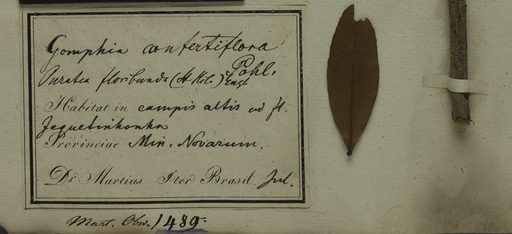 Gomphia confertiflora
Pohl.
Ouratea floribunda (St. Hil.) Engl
Habitat in campis altis ad fl.
Jequetinhonha
Provinciae Min. Novarum.
Dr. Martius Iter Brasil. Jul.
Mart. Obs. 1489.